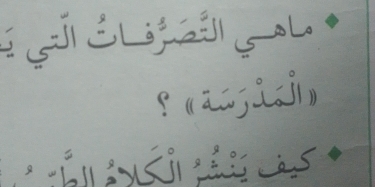 ماهي التَّصَرُّفاتُ الّتي
«الْمَدْرَسَة» ؟
كيف يَنْشُرُ الْكَلامُ الطَّيِّبُ